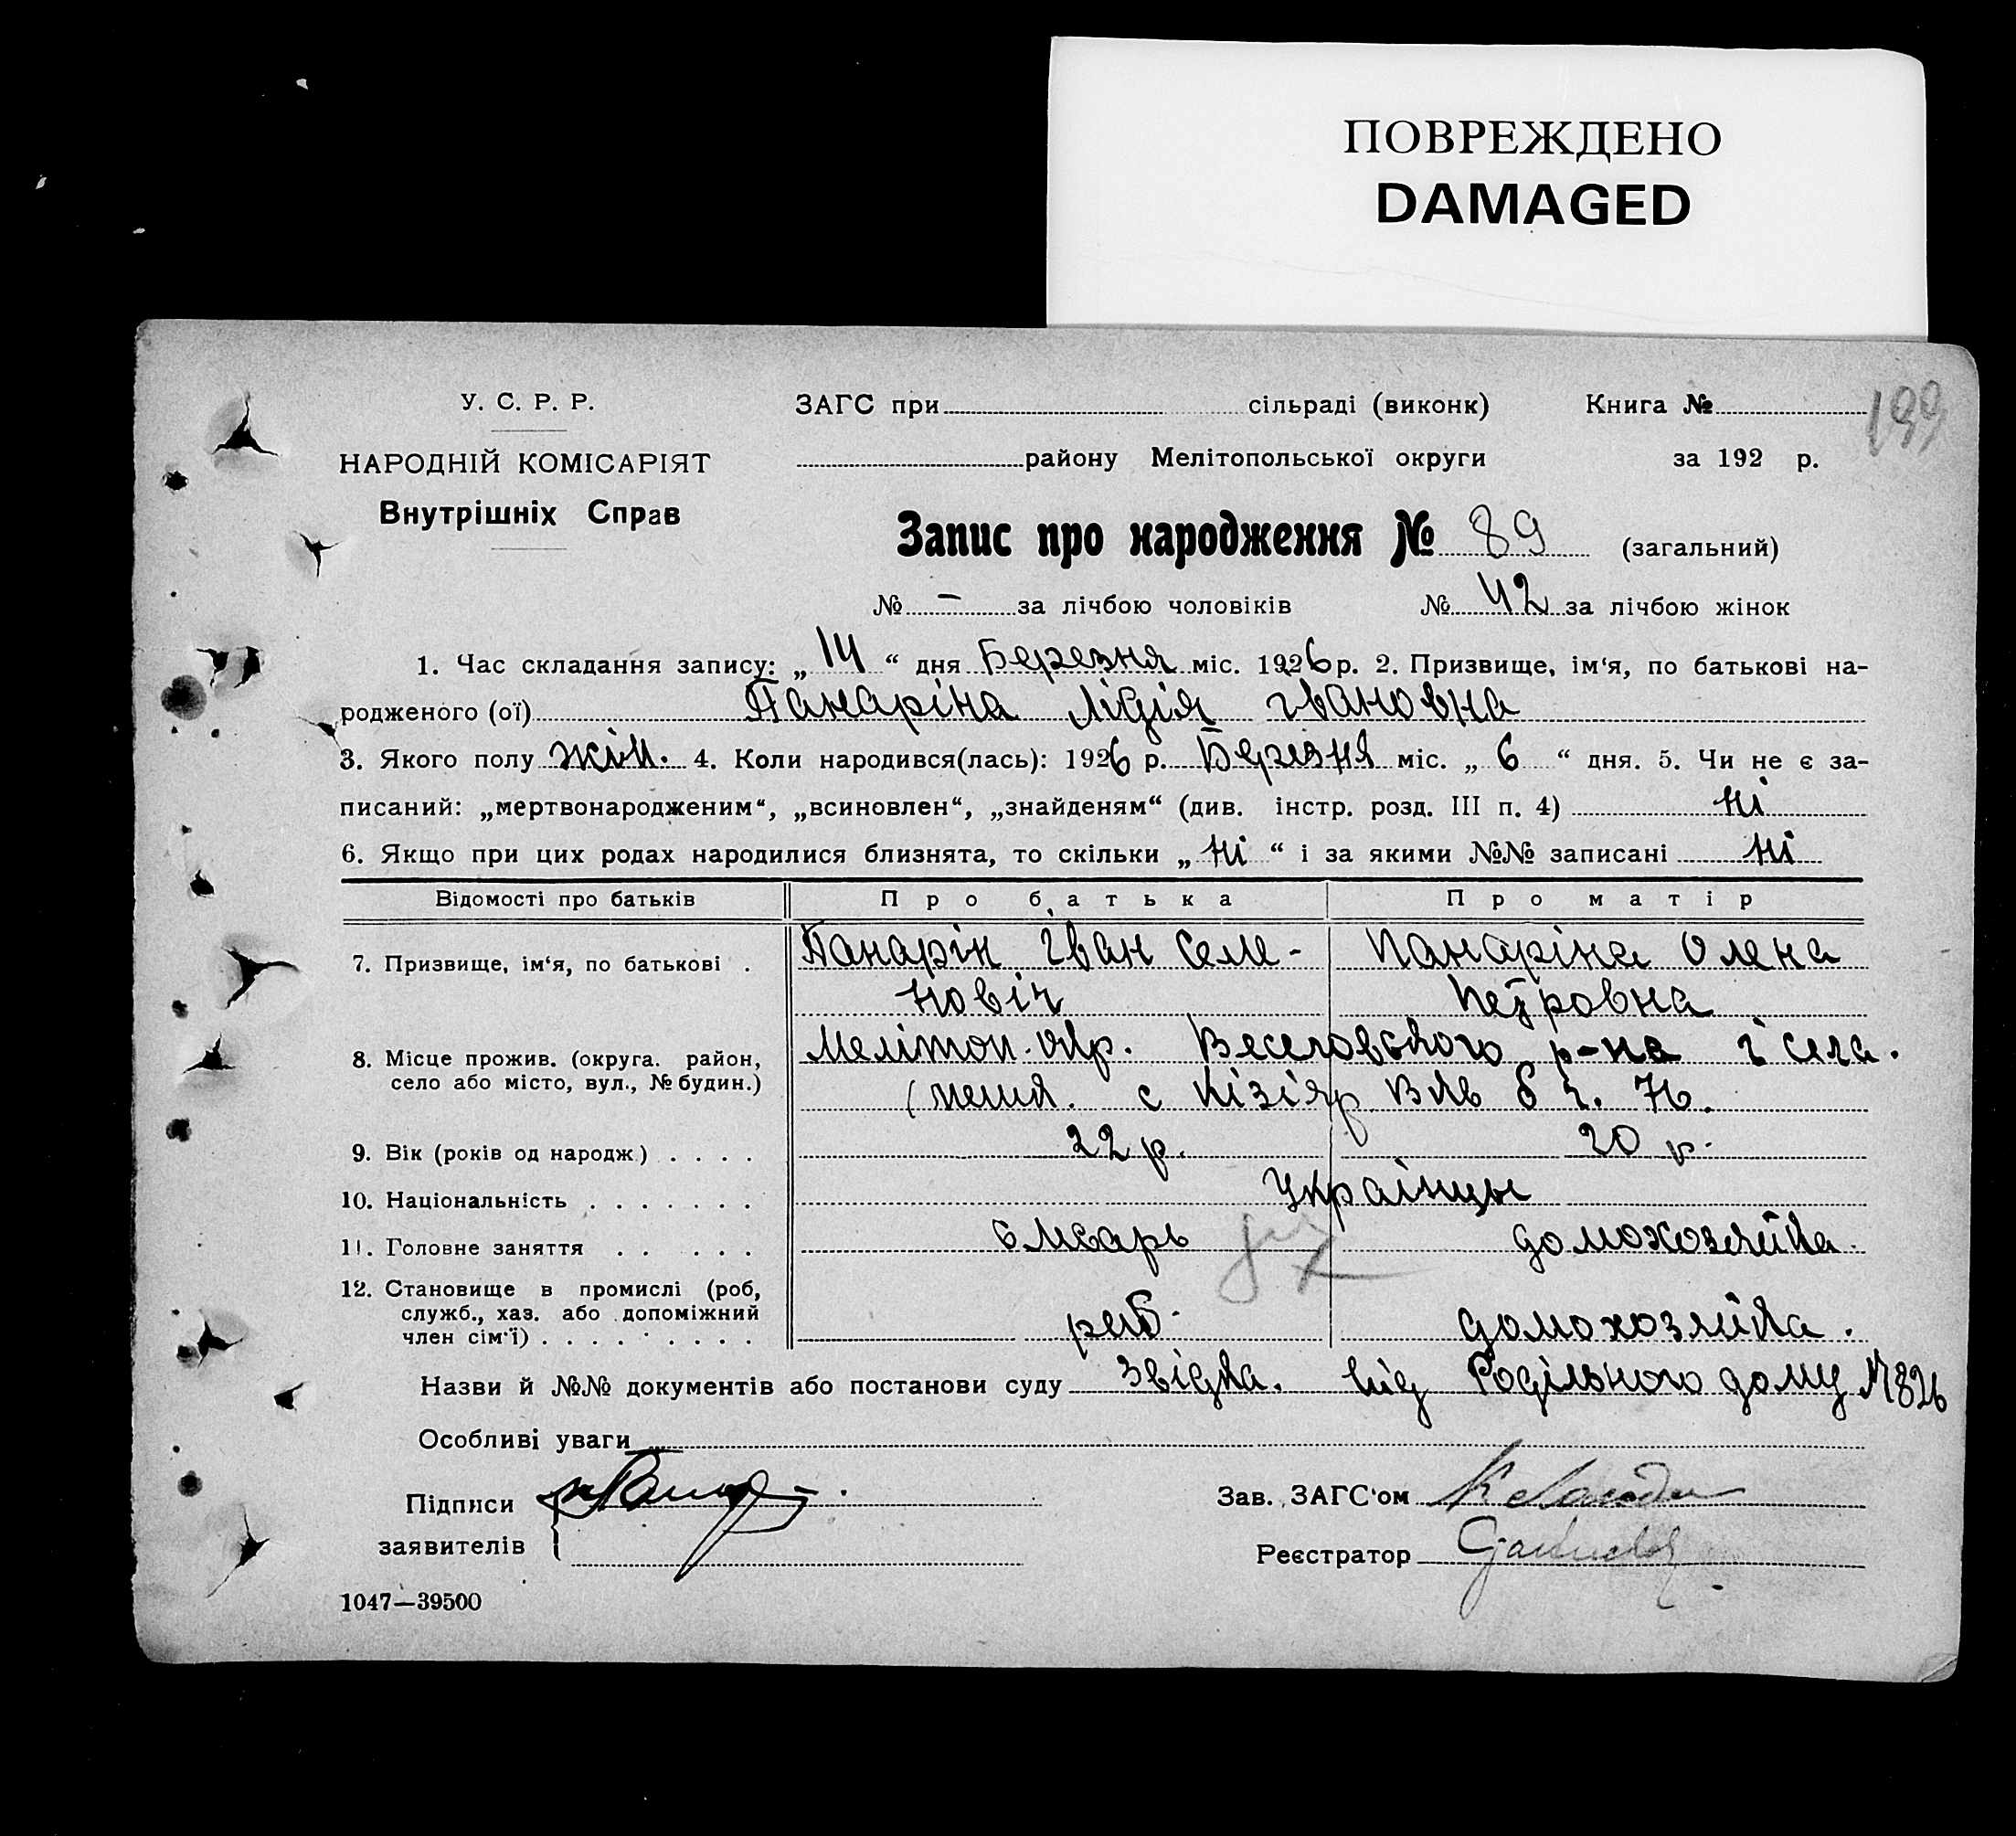 ПОВРЕЖДЕНО
DAMAGED
У. С. Р. Р.
НАРОДНІЙ КОМІСАРІЯТ
Внутрішніх Справ
ЗАГС при сільраді (виконк) Книга № 199
району Мелітопольської округи за 192 р.
Запис про народження № 89 (загальний)
№ — за лічбою чоловіків № 42 за лічбою жінок
1. Час складання запису: „ 14 “ дня Березня міс. 1926 р. 2. Призвище, ім‘я, по батькові на-
родженого (ої) Панаріна Лідія Івановна
3. Якого полу жін. 4. Коли народився(лась): 1926 р. Березня міс. „ 6 “ дня. 5. Чи не є за-
писаний: „мертвонародженим“, „всиновлен“, „знайденям“ (див. інстр. розд. III п. 4) ні
6. Якщо при цих родах народилися близнята, то скільки „ ні “ і за якими №№ записані ні
Відомості про батьків Про батька Про матір
7. Призвище, ім‘я, по батькові . Панарін Іван Семе- Панаріна Олена
новіч Петровна
8. Місце прожив. (округа. район, Мелітоп. окр. Веселовського р-на і села.
село або місто, вул., № будин.) с Кізіяр
9. Вік (років од народж.) . . . . 22 р. 20 р.
10. Національність . . . . . . . Українцы
11. Головне заняття . . . . . слесарь домохозяйка.
12. Становище в промислі (роб,
служб., хаз. або допоміжний
член сім‘ї) . . . . . . . . . роб. домохозяйка.
Назви й №№ документів або постанови суду Звідка. від Родільного дому № 826
Особливі уваги
Підписи Зав. ЗАГС‘ом
заявителів Реєстратор
1047—39500